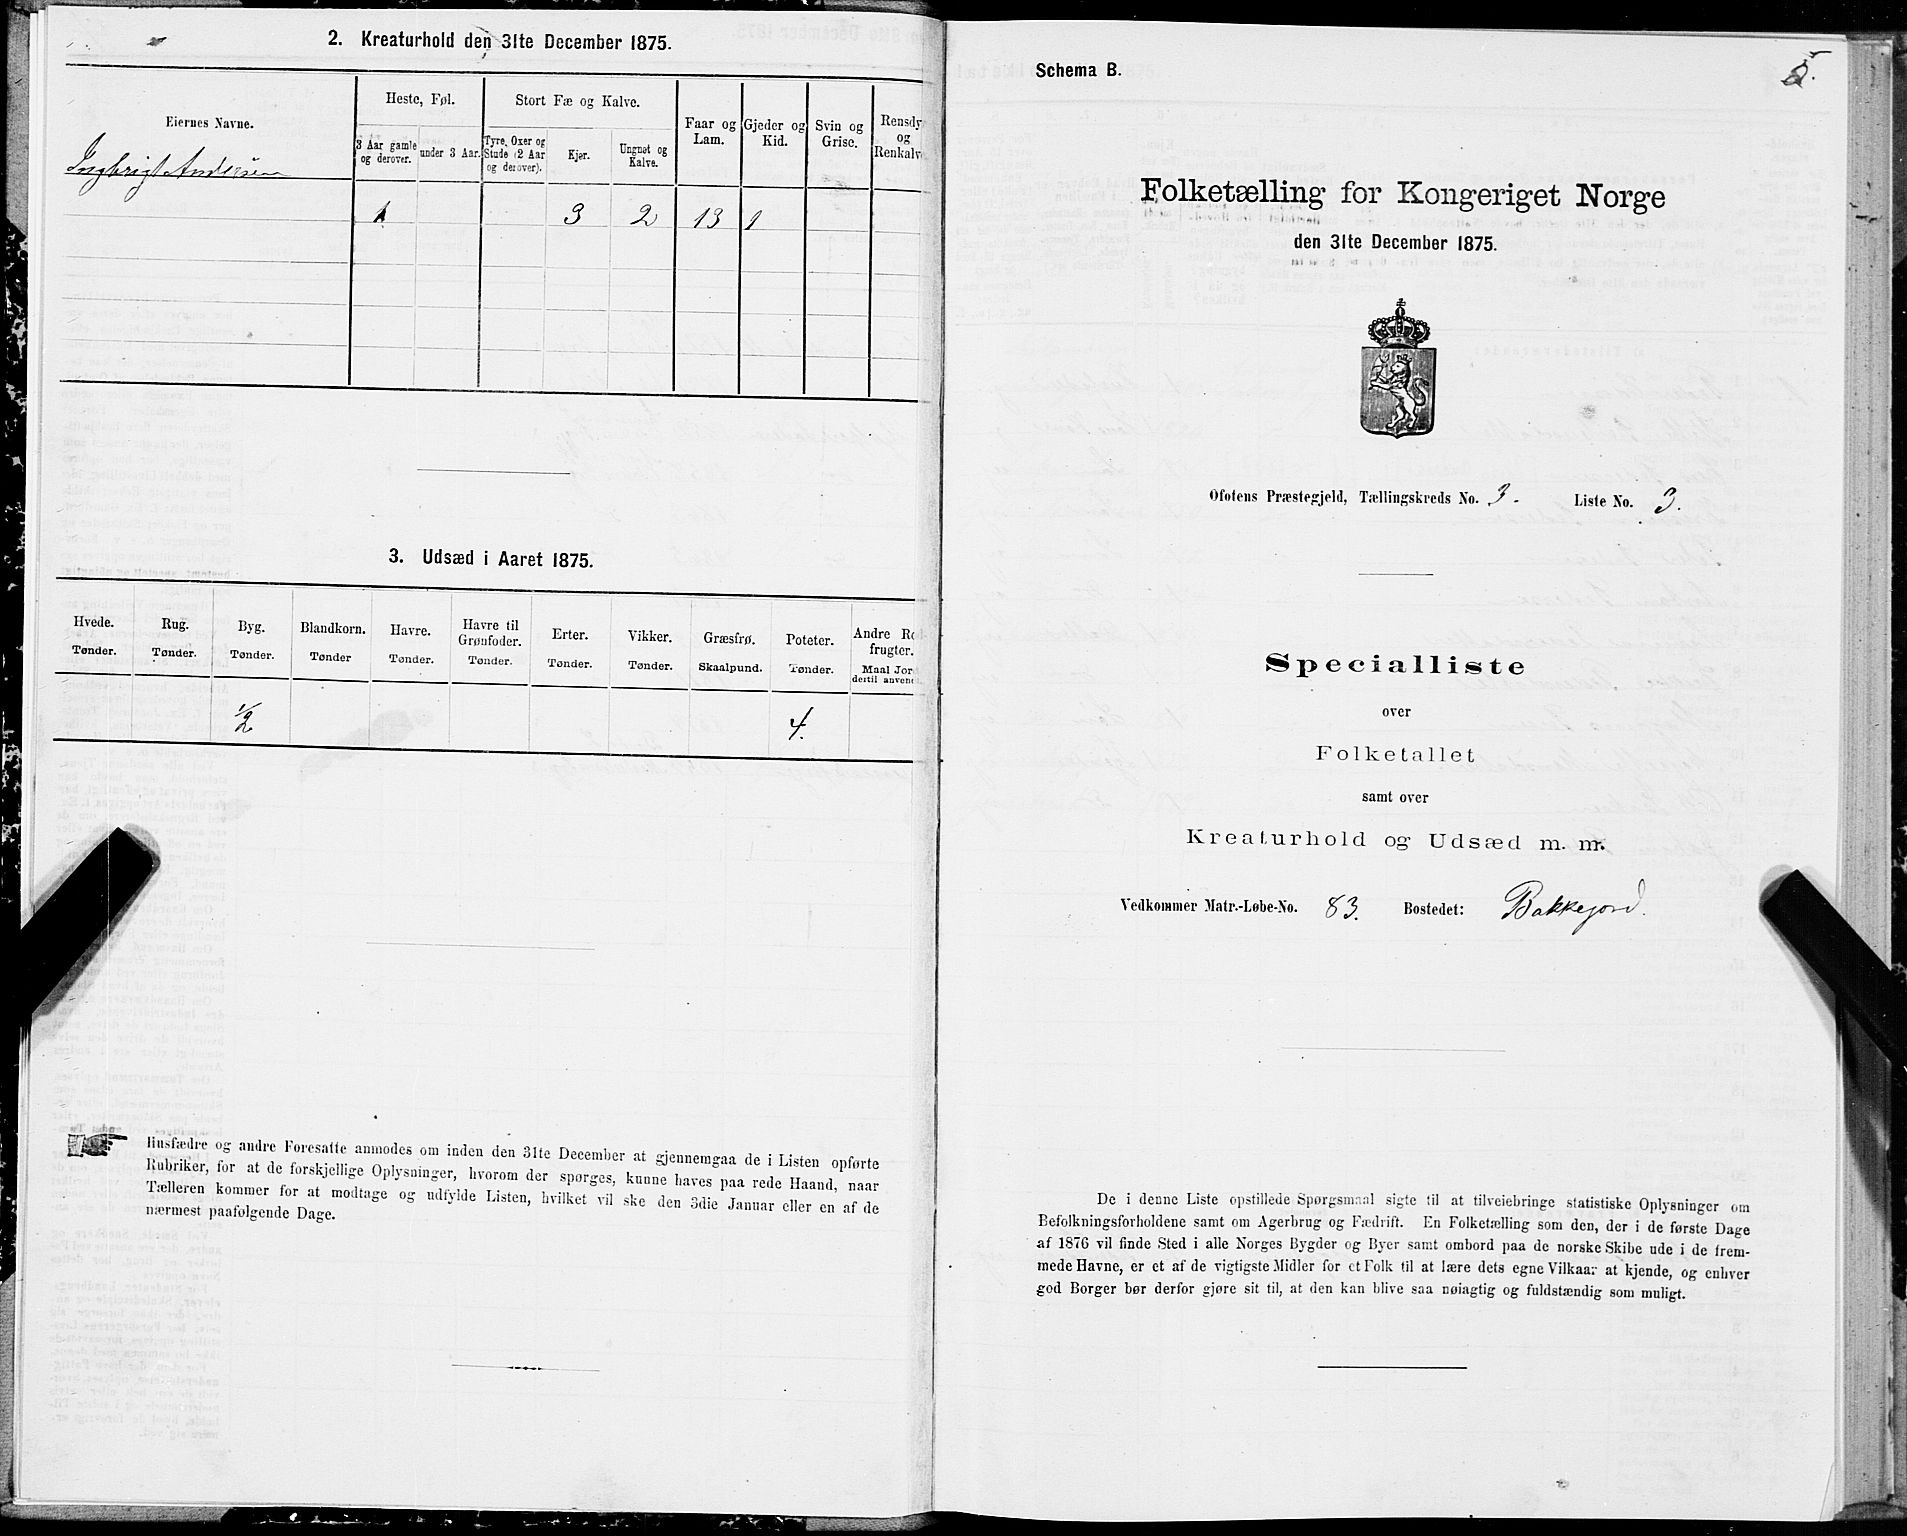 2. Kreaturhold den 31te December 1875.
Eiernes Navne.
Heste, Føl.
Stort Fæ og Kalve.
Faar og Lam.
Gjeder og Kid.
Svin og Grise.
Rensdy
og
Renkalv
3 Aar gamle og derover.
under 3 Aar.
Tyre, Oxer og Stude (2 Aar og derover).
Kjør.
Ungnøt og Kalve.
Ingbrigt Andersen
1 3 2 13 1
3. Udsæd i Aaret 1875.
Hvede. Tønder.
Rug. Tønder.
Byg. Tønder.
Blandkorn. Tønder
Havre. Tønder.
Havre til Grønfoder. Tønder.
Erter. Tønder.
Vikker. Tønder.
Græsfrø. Skaalpund.
Poteter. Tønder.
Andre Ro
frugter.
Maal Jor
dertil anven
1/2 4.
Husfædre og andre Foresatte anmodes om inden den 31te December at gjennemgaa de i Listen opførte
Rubriker, for at de forskjellige Oplysninger, hvorom der spørges, kunne haves paa rede Haand, naar
Tælleren kommer for at modtage og udfylde Listen, hvilket vil ske den 3die Januar eller en af de
nærmest paafølgende Dage.
Schema B.
5.
Folketælling for Kongeriget Norge
den 31te December 1875.
Ofotens Præstegjeld, Tællingskreds No. 3. Liste No. 3.
Specialliste
over
Folketallet
samt over
Kreaturhold og Udsæd m. m.
Vedkommer Matr.-Løbe-No. 83. Bostedet: Bakkejord.
De i denne Liste opstillede Spørgsmaal sigte til at tilveiebringe statistiske Oplysninger om
Befolkningsforholdene samt om Agerbrug og Fædrift. En Folketælling som den, der i de første Dage
af 1876 vil finde Sted i alle Norges Bygder og Byer samt ombord paa de norske Skibe ude i de frem-
mede Havne, er et af de vigtigste Midler for et Folk til at lære dets egne Vilkaar at kjende, og enhver
god Borger bør derfor gjøre sit til, at den kan blive saa nøiagtig og fuldstændig som muligt.